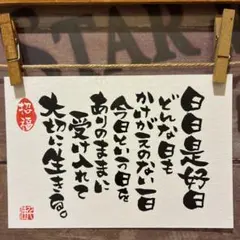 日日是好日
どんな日も
かけがえのない一日
今日という日を
ありのままに
受け入れて
大切に生きる。
招福
STAR